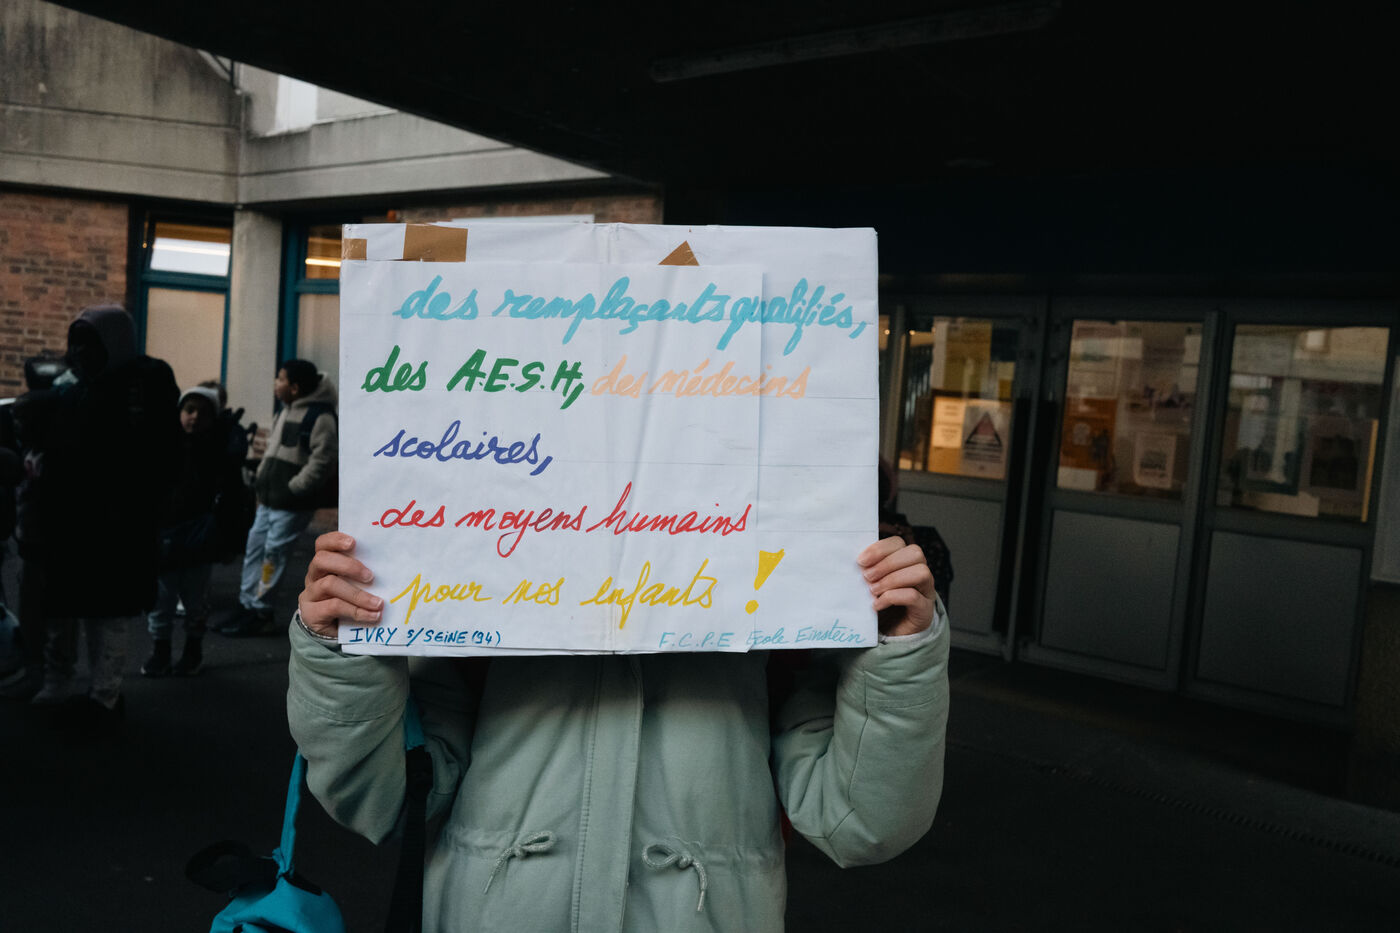 des remplaçants qualifiés,
des A.E.S.H, des médecins
scolaires,
des moyens humains
pour nos enfants !
IVRY S/SEINE (94)
F.C.P.E Ecole Einstein